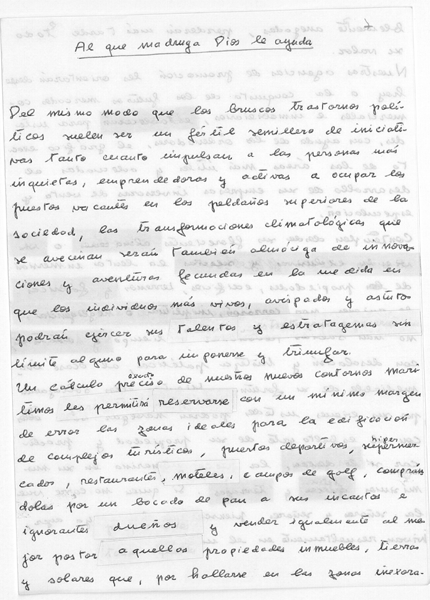 Al que madruga Dios le ayuda
Del mismo modo que los bruscos trastornos polí-
ticos suelen ser un fértil semillero de iniciati-
vas tanto cuanto impulsan a las personas más
inquietas, emprendedoras y activas a ocupar los
puestos vacantes en los peldaños superiores de la
sociedad, las transformaciones climatológicas que
se avecinan serán también almáciga de innova-
ciones y aventuras fecundas en la medida en
que los individuos más vivos, avispados y astutos
podrán ejercer sus talentos y estratagemas sin
límite alguno para imponerse y triunfar.
Un cálculo exacto de nuestros nuevos contornos marí
timos les permitirá reservarse con un mínimo margen
de error las zonas ideales para la edificación
de complejos turísticos, puertos deportivos, hipermer
cados, restaurantes, moteles, campos de golf, comprán
dolas por un bocado de pan a sus incautos e
ignorantes dueños y vender igualmente al me
jor postor aquellas propiedades inmuebles, tierras
y solares que, por hallarse en las zonas inexora-